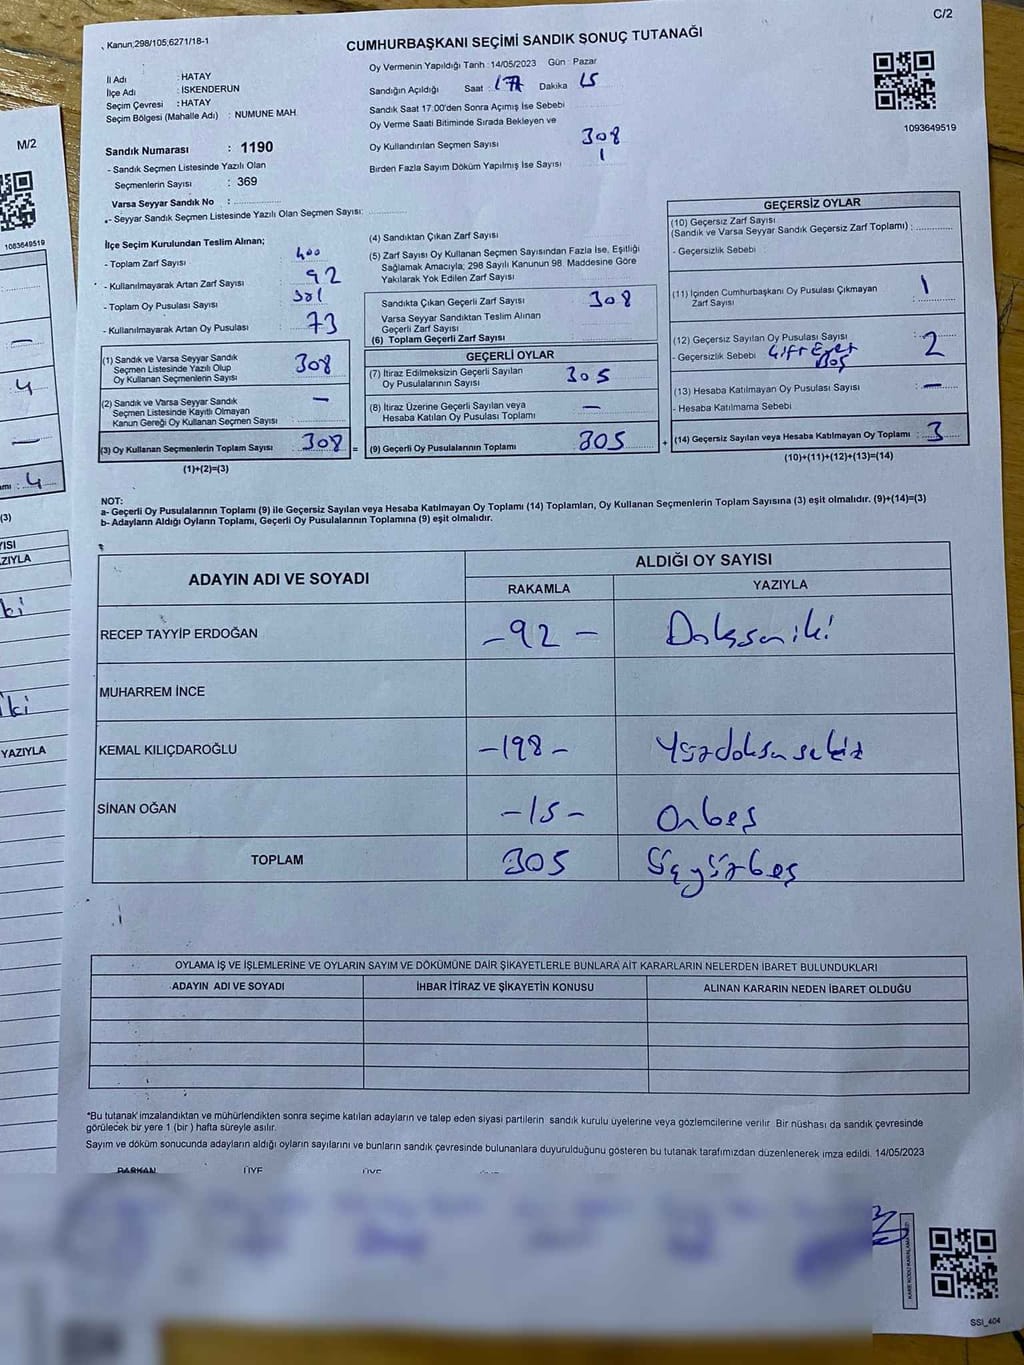 C/2
Kanun;298/105;6271/18-1
CUMHURBAŞKANI SEÇİMİ SANDIK SONUÇ TUTANAĞI
İl Adı : HATAY
İlçe Adı : İSKENDERUN
Seçim Çevresi : HATAY
Seçim Bölgesi (Mahalle Adı) : NUMUNE MAH.
Oy Vermenin Yapıldığı Tarih : 14/05/2023 Gün : Pazar
Sandığın Açıldığı Saat : 17 Dakika 15
Sandık Saat 17:00'den Sonra Açımış İse Sebebi
Oy Verme Saati Bitiminde Sırada Bekleyen ve
Oy Kullandırılan Seçmen Sayısı 308
Birden Fazla Sayım Döküm Yapılmış İse Sayısı 1
1093649519
Sandık Numarası : 1190
- Sandık Seçmen Listesinde Yazılı Olan
Seçmenlerin Sayısı : 369
Varsa Seyyar Sandık No :
- Seyyar Sandık Seçmen Listesinde Yazılı Olan Seçmen Sayısı:
İlçe Seçim Kurulundan Teslim Alınan;
- Toplam Zarf Sayısı : 400
- Kullanılmayarak Artan Zarf Sayısı : 92
- Toplam Oy Pusulası Sayısı : 381
- Kullanılmayarak Artan Oy Pusulası : 73
(1) Sandık ve Varsa Seyyar Sandık
Seçmen Listesinde Yazılı Olup
Oy Kullanan Seçmenlerin Sayısı 308
(2) Sandık ve Varsa Seyyar Sandık
Seçmen Listesinde Kayıtlı Olmayan
Kanun Gereği Oy Kullanan Seçmen Sayısı : —
(3) Oy Kullanan Seçmenlerin Toplam Sayısı : 308 =
(1)+(2)=(3)
(4) Sandıktan Çıkan Zarf Sayısı
(5) Zarf Sayısı Oy Kullanan Seçmen Sayısından Fazla İse, Eşitliği
Sağlamak Amacıyla; 298 Sayılı Kanunun 98. Maddesine Göre
Yakılarak Yok Edilen Zarf Sayısı
Sandıkta Çıkan Geçerli Zarf Sayısı : 308
Varsa Seyyar Sandıktan Teslim Alınan
Geçerli Zarf Sayısı
(6) Toplam Geçerli Zarf Sayısı
GEÇERLİ OYLAR
(7) İtiraz Edilmeksizin Geçerli Sayılan
Oy Pusulalarının Sayısı 305
(8) İtiraz Üzerine Geçerli Sayılan veya
Hesaba Katılan Oy Pusulası Toplamı —
(9) Geçerli Oy Pusulalarının Toplamı 305 +
GEÇERSİZ OYLAR
(10) Geçersiz Zarf Sayısı
(Sandık ve Varsa Seyyar Sandık Geçersiz Zarf Toplamı) :
- Geçersizlik Sebebi :
(11) İçinden Cumhurbaşkanı Oy Pusulası Çıkmayan
Zarf Sayısı : 1
(12) Geçersiz Sayılan Oy Pusulası Sayısı : 2
- Geçersizlik Sebebi Çift Evet
Boş
(13) Hesaba Katılmayan Oy Pusulası Sayısı : —
- Hesaba Katılmama Sebebi
(14) Geçersiz Sayılan veya Hesaba Katılmayan Oy Toplamı : 3
(10)+(11)+(12)+(13)=(14)
NOT:
a- Geçerli Oy Pusulalarının Toplamı (9) ile Geçersiz Sayılan veya Hesaba Katılmayan Oy Toplamı (14) Toplamları, Oy Kullanan Seçmenlerin Toplam Sayısına (3) eşit olmalıdır. (9)+(14)=(3)
b- Adayların Aldığı Oyların Toplamı, Geçerli Oy Pusulalarının Toplamına (9) eşit olmalıdır.
ADAYIN ADI VE SOYADI ALDIĞI OY SAYISI
RAKAMLA YAZIYLA
RECEP TAYYİP ERDOĞAN -92- Doksaniki
MUHARREM İNCE
KEMAL KILIÇDAROĞLU -198- Yüzdoksansekiz
SİNAN OĞAN -15- Onbeş
TOPLAM 305 Üçyüzbeş
OYLAMA İŞ VE İŞLEMLERİNE VE OYLARIN SAYIM VE DÖKÜMÜNE DAİR ŞİKAYETLERLE BUNLARA AİT KARARLARIN NELERDEN İBARET BULUNDUKLARI
ADAYIN ADI VE SOYADI İHBAR İTİRAZ VE ŞİKAYETİN KONUSU ALINAN KARARIN NEDEN İBARET OLDUĞU
*Bu tutanak imzalandıktan ve mühürlendikten sonra seçime katılan adayların ve talep eden siyasi partilerin sandık kurulu üyelerine veya gözlemcilerine verilir. Bir nüshası da sandık çevresinde
görülecek bir yere 1 (bir) hafta süreyle asılır.
Sayım ve döküm sonucunda adayların aldığı oyların sayılarını ve bunların sandık çevresinde bulunanlara duyurulduğunu gösteren bu tutanak tarafımızdan düzenlenerek imza edildi. 14/05/2023
BAŞKAN ÜYE ÜYE
SSİ_404
M/2
1083649519
—
4
—
4
(3)
YISI
ZIYLA
ki
iki
YAZIYLA